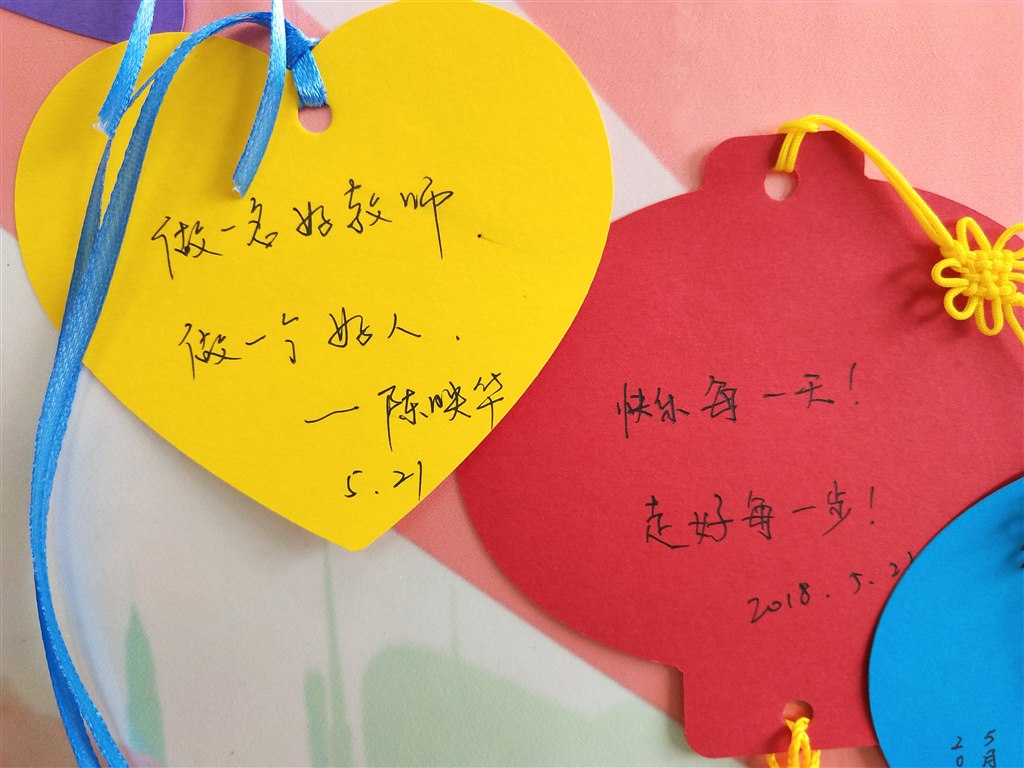 做一名好教师.
做一个好人.
—陈映华
5.21
快乐每一天!
走好每一步!
2018.5.21
5月
20